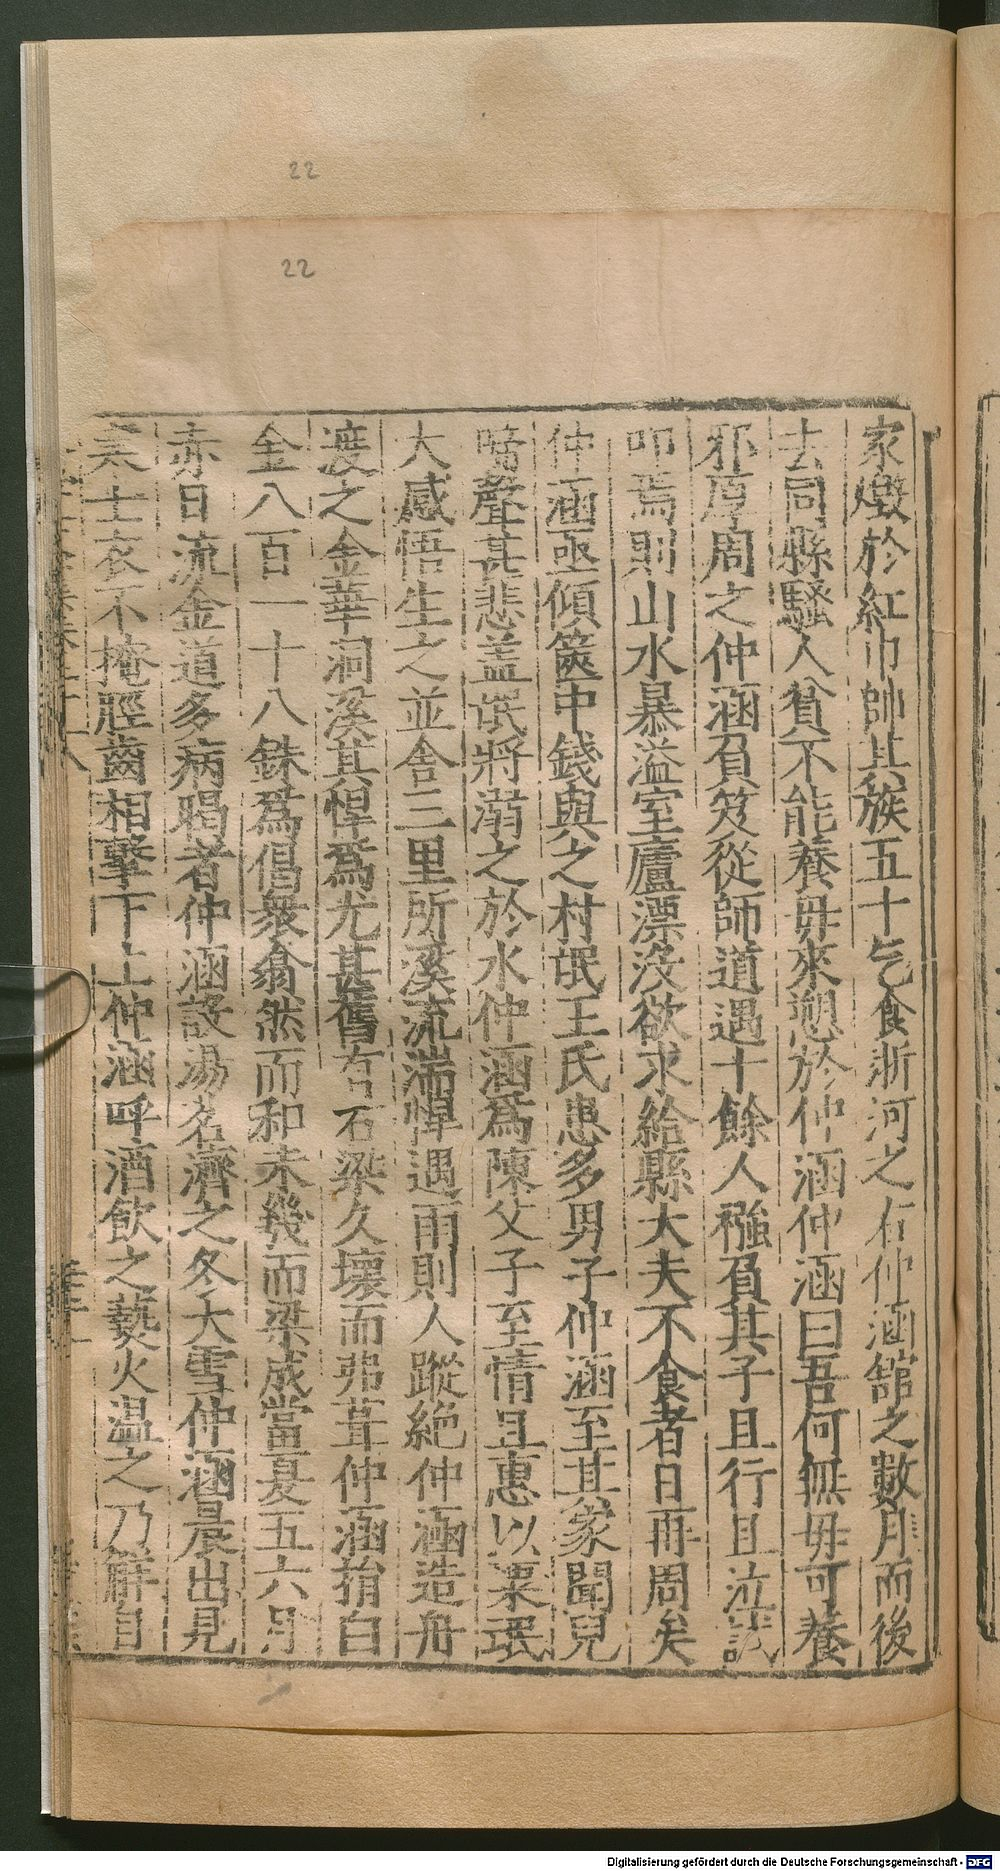 22
22
家燬於紅巾帥其族五十乞食浙河之右仲涵舘之數月而後
去同縣騷人貧不能養毋來愬於仲涵仲涵曰吾何無毋可養
邪厚周之仲涵負笈從師道遇十餘人襁負其子且行且泣試
叩焉則山水暴溢室廬漂沒欲求給縣大夫不食者日再周矣
仲涵亟傾篋中錢與之村氓王氏患多男子仲涵至其家聞兒
啼聲甚悲盖氓將溺之於水仲涵爲陳父子至情且惠以粟氓
大感悟生之並舍三里所溪流湍悍遇雨則人蹤絶仲涵造舟
渡之金華洞溪其悍爲尤甚舊有石梁久壞而弗葺仲涵捐白
金八百一十八銖爲倡衆翕然而和未幾而梁成當夏五六月
赤日流金道多病暍者仲涵設湯茗濟之冬大雪仲涵晨出見
寒士衣不掩脛齒相擊下上仲涵呼酒飮之爇火温之乃觧自
Digitalisierung gefördert durch die Deutsche Forschungsgemeinschaft - DFG